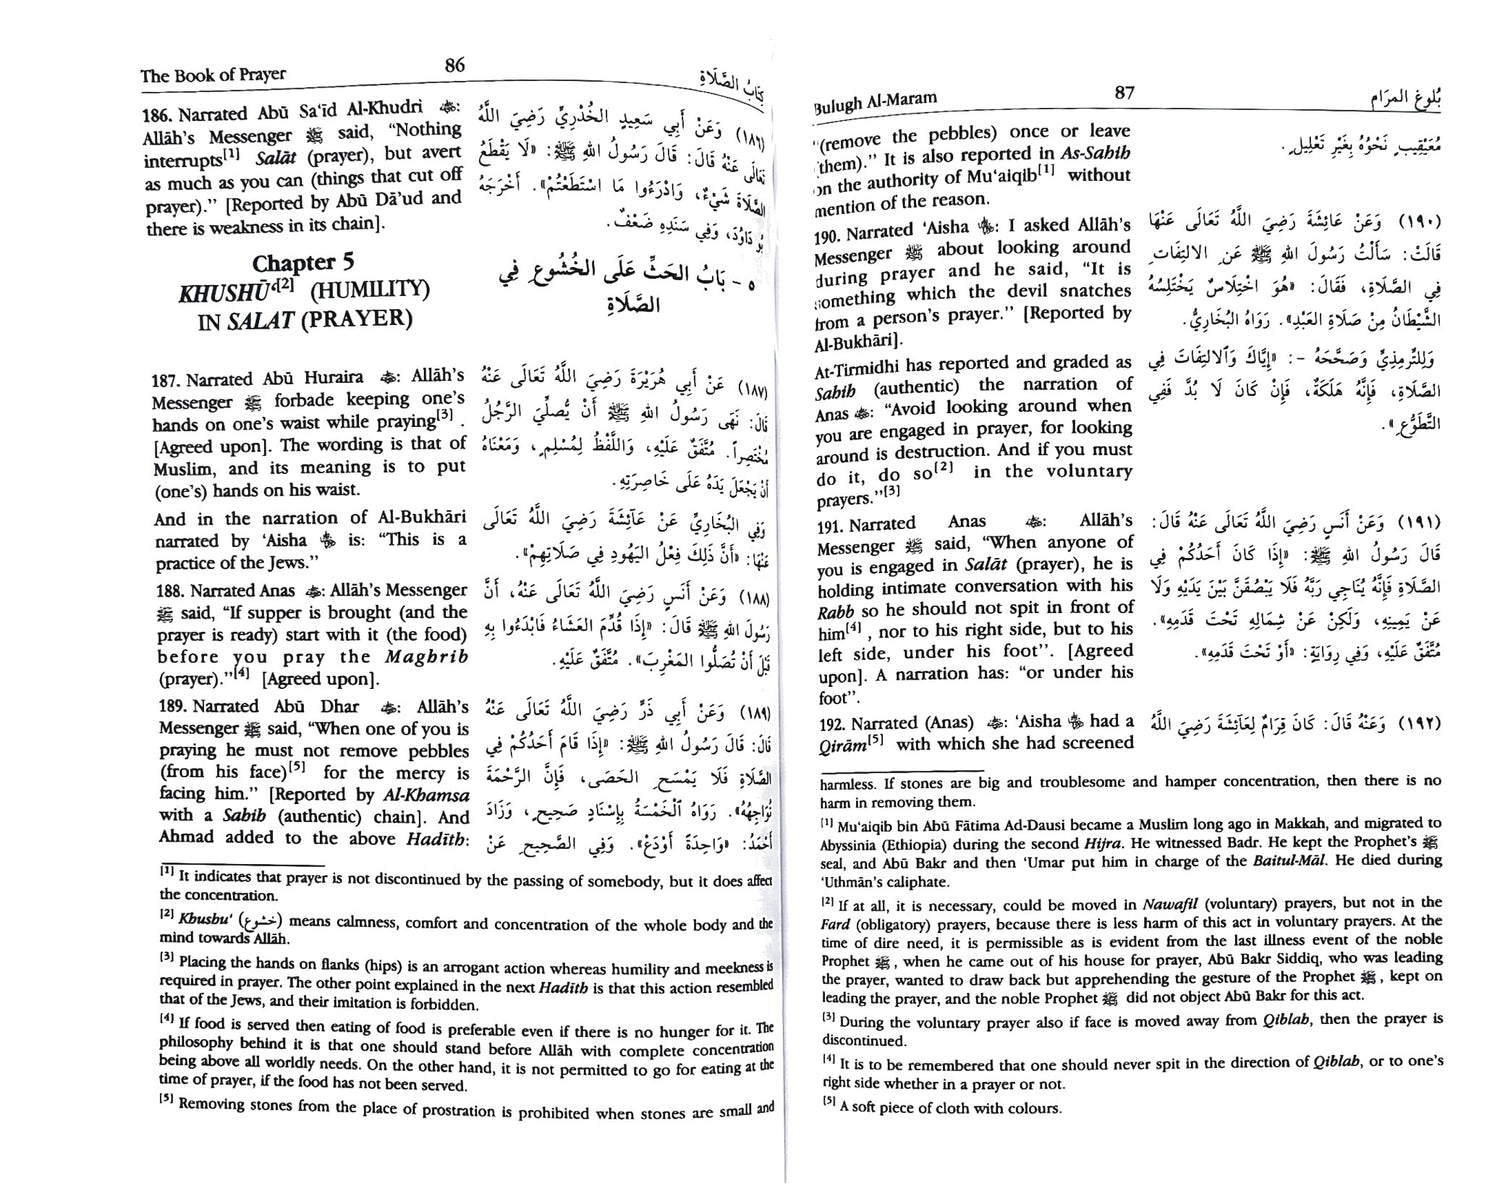 The Book of Prayer
86
كِتَابُ الصَّلَاةِ
186. Narrated Abū Sa‘īd Al-Khudri ﷺ:
Allāh's Messenger ﷺ said, “Nothing
interrupts[1] Salāt (prayer), but avert
as much as you can (things that cut off
prayer).” [Reported by Abū Dā’ud and
there is weakness in its chain].
(١٨٦) وَعَنْ أَبِي سَعِيدٍ الخُدْرِيِّ رَضِيَ اللَّهُ
تَعَالَى عَنْهُ قَالَ: قَالَ رَسُولُ اللهِ ﷺ: «لَا يَقْطَعُ
الصَّلَاةَ شَيْءٌ، وَادْرَءُوا مَا اسْتَطَعْتُمْ». أَخْرَجَهُ
بُو دَاوُدَ، وَفِي سَنَدِهِ ضَعْفٌ.
Chapter 5
KHUSHŪ‘[2] (HUMILITY)
IN SALAT (PRAYER)
٥ - بَابُ الحَثِّ عَلَى الخُشُوعِ فِي
الصَّلَاةِ
187. Narrated Abū Huraira : Allāh's
Messenger ﷺ forbade keeping one's
hands on one's waist while praying[3] .
[Agreed upon]. The wording is that of
Muslim, and its meaning is to put
(one's) hands on his waist.
And in the narration of Al-Bukhāri
narrated by ‘Aisha is: “This is a
practice of the Jews.”
(١٨٧) عَنْ أَبِي هُرَيْرَةَ رَضِيَ اللَّهُ تَعَالَى عَنْهُ
قَالَ: نَهَى رَسُولُ اللهِ ﷺ أَنْ يُصَلِّيَ الرَّجُلُ
مُخْتَصِراً. مُتَّفَقٌ عَلَيْهِ، وَاللَّفْظُ لِمُسْلِمٍ، وَمَعْنَاهُ
أَنْ يَجْعَلَ يَدَهُ عَلَى خَاصِرَتِهِ.
وَفِي البُخَارِيِّ عَنْ عَآئِشَةَ رَضِيَ اللَّهُ تَعَالَى
عَنْهَا: «أَنَّ ذَلِكَ فِعْلُ اليَهُودِ فِي صَلَاتِهِمْ».
188. Narrated Anas : Allāh's Messenger
ﷺ said, “If supper is brought (and the
prayer is ready) start with it (the food)
before you pray the Maghrib
(prayer).”[4] [Agreed upon].
(١٨٨) وَعَنْ أَنَسٍ رَضِيَ اللَّهُ تَعَالَى عَنْهُ، أَنَّ
رَسُولَ اللهِ ﷺ قَالَ: «إِذَا قُدِّمَ العَشَاءُ فَابْدَءُوا بِهِ
قَبْلَ أَنْ تُصَلُّوا المَغْرِبَ». مُتَّفَقٌ عَلَيْهِ.
189. Narrated Abū Dhar : Allāh's
Messenger ﷺ said, “When one of you is
praying he must not remove pebbles
(from his face)[5] for the mercy is
facing him.” [Reported by Al-Khamsa
with a Sahih (authentic) chain]. And
Ahmad added to the above Hadīth:
(١٨٩) وَعَنْ أَبِي ذَرٍّ رَضِيَ اللَّهُ تَعَالَى عَنْهُ
قَالَ: قَالَ رَسُولُ اللهِ ﷺ: «إِذَا قَامَ أَحَدُكُمْ فِي
الصَّلَاةِ فَلَا يَمْسَحِ الحَصَى، فَإِنَّ الرَّحْمَةَ
تُوَاجِهُهُ». رَوَاهُ الْخَمْسَةُ بِإِسْنَادٍ صَحِيحٍ، وَزَادَ
أَحْمَدُ: «وَاحِدَةً أَوْدَعْ». وَفِي الصَّحِيحِ عَنْ
[1] It indicates that prayer is not discontinued by the passing of somebody, but it does affect
the concentration.
[2] Khushu‘ (خشوع) means calmness, comfort and concentration of the whole body and the
mind towards Allāh.
[3] Placing the hands on flanks (hips) is an arrogant action whereas humility and meekness is
required in prayer. The other point explained in the next Hadīth is that this action resembled
that of the Jews, and their imitation is forbidden.
[4] If food is served then eating of food is preferable even if there is no hunger for it. The
philosophy behind it is that one should stand before Allāh with complete concentration
being above all worldly needs. On the other hand, it is not permitted to go for eating at the
time of prayer, if the food has not been served.
[5] Removing stones from the place of prostration is prohibited when stones are small and
Bulugh Al-Maram
87
بُلوغ المرَام
“(remove the pebbles) once or leave
them).” It is also reported in As-Sahih
on the authority of Mu‘aiqib[1] without
mention of the reason.
مُعَيْقِيبٍ نَحْوُهُ بِغَيْرِ تَعْلِيلٍ.
190. Narrated ‘Aisha : I asked Allāh's
Messenger ﷺ about looking around
during prayer and he said, “It is
something which the devil snatches
from a person's prayer.” [Reported by
Al-Bukhāri].
At-Tirmidhi has reported and graded as
Sahih (authentic) the narration of
Anas : “Avoid looking around when
you are engaged in prayer, for looking
around is destruction. And if you must
do it, do so[2] in the voluntary
prayers.”[3]
(١٩٠) وَعَنْ عَائِشَةَ رَضِيَ اللَّهُ تَعَالَى عَنْهَا
قَالَتْ: سَأَلْتُ رَسُولَ اللهِ ﷺ عَنِ الالتِفَاتِ
فِي الصَّلَاةِ، فَقَالَ: «هُوَ اخْتِلَاسٌ يَخْتَلِسُهُ
الشَّيْطَانُ مِنْ صَلَاةِ العَبْدِ». رَوَاهُ البُخَارِيُّ.
وَلِلتِّرمِذِيِّ وَصَحَّحَهُ -: «إِيَّاكَ وَالالتِفَاتَ فِي
الصَّلَاةِ، فَإِنَّهُ هَلَكَةٌ، فَإِنْ كَانَ لَا بُدَّ فَفِي
التَّطَوُّعِ».
191. Narrated Anas : Allāh's
Messenger ﷺ said, “When anyone of
you is engaged in Salāt (prayer), he is
holding intimate conversation with his
Rabb so he should not spit in front of
him[4] , nor to his right side, but to his
left side, under his foot”. [Agreed
upon]. A narration has: “or under his
foot”.
(١٩١) وَعَنْ أَنَسٍ رَضِيَ اللَّهُ تَعَالَى عَنْهُ قَالَ:
قَالَ رَسُولُ اللهِ ﷺ: «إِذَا كَانَ أَحَدُكُمْ فِي
الصَّلَاةِ فَإِنَّهُ يُنَاجِي رَبَّهُ فَلَا يَبْصُقَنَّ بَيْنَ يَدَيْهِ وَلَا
عَنْ يَمِينِهِ، وَلَكِنْ عَنْ شِمَالِهِ تَحْتَ قَدَمِهِ».
مُتَّفَقٌ عَلَيْهِ، وَفِي رِوَايَةٍ: «أَوْ تَحْتَ قَدَمِهِ».
192. Narrated (Anas) : ‘Aisha had a
Qirām[5] with which she had screened
(١٩٢) وَعَنْهُ قَالَ: كَانَ قِرَامٌ لِعَآئِشَةَ رَضِيَ اللَّهُ
harmless. If stones are big and troublesome and hamper concentration, then there is no
harm in removing them.
[1] Mu‘aiqib bin Abū Fātima Ad-Dausi became a Muslim long ago in Makkah, and migrated to
Abyssinia (Ethiopia) during the second Hijra. He witnessed Badr. He kept the Prophet's ﷺ
seal, and Abū Bakr and then ‘Umar put him in charge of the Baitul-Māl. He died during
‘Uthmān's caliphate.
[2] If at all, it is necessary, could be moved in Nawafil (voluntary) prayers, but not in the
Fard (obligatory) prayers, because there is less harm of this act in voluntary prayers. At the
time of dire need, it is permissible as is evident from the last illness event of the noble
Prophet ﷺ, when he came out of his house for prayer, Abū Bakr Siddiq, who was leading
the prayer, wanted to draw back but apprehending the gesture of the Prophet ﷺ, kept on
leading the prayer, and the noble Prophet ﷺ did not object Abū Bakr for this act.
[3] During the voluntary prayer also if face is moved away from Qiblah, then the prayer is
discontinued.
[4] It is to be remembered that one should never spit in the direction of Qiblah, or to one's
right side whether in a prayer or not.
[5] A soft piece of cloth with colours.